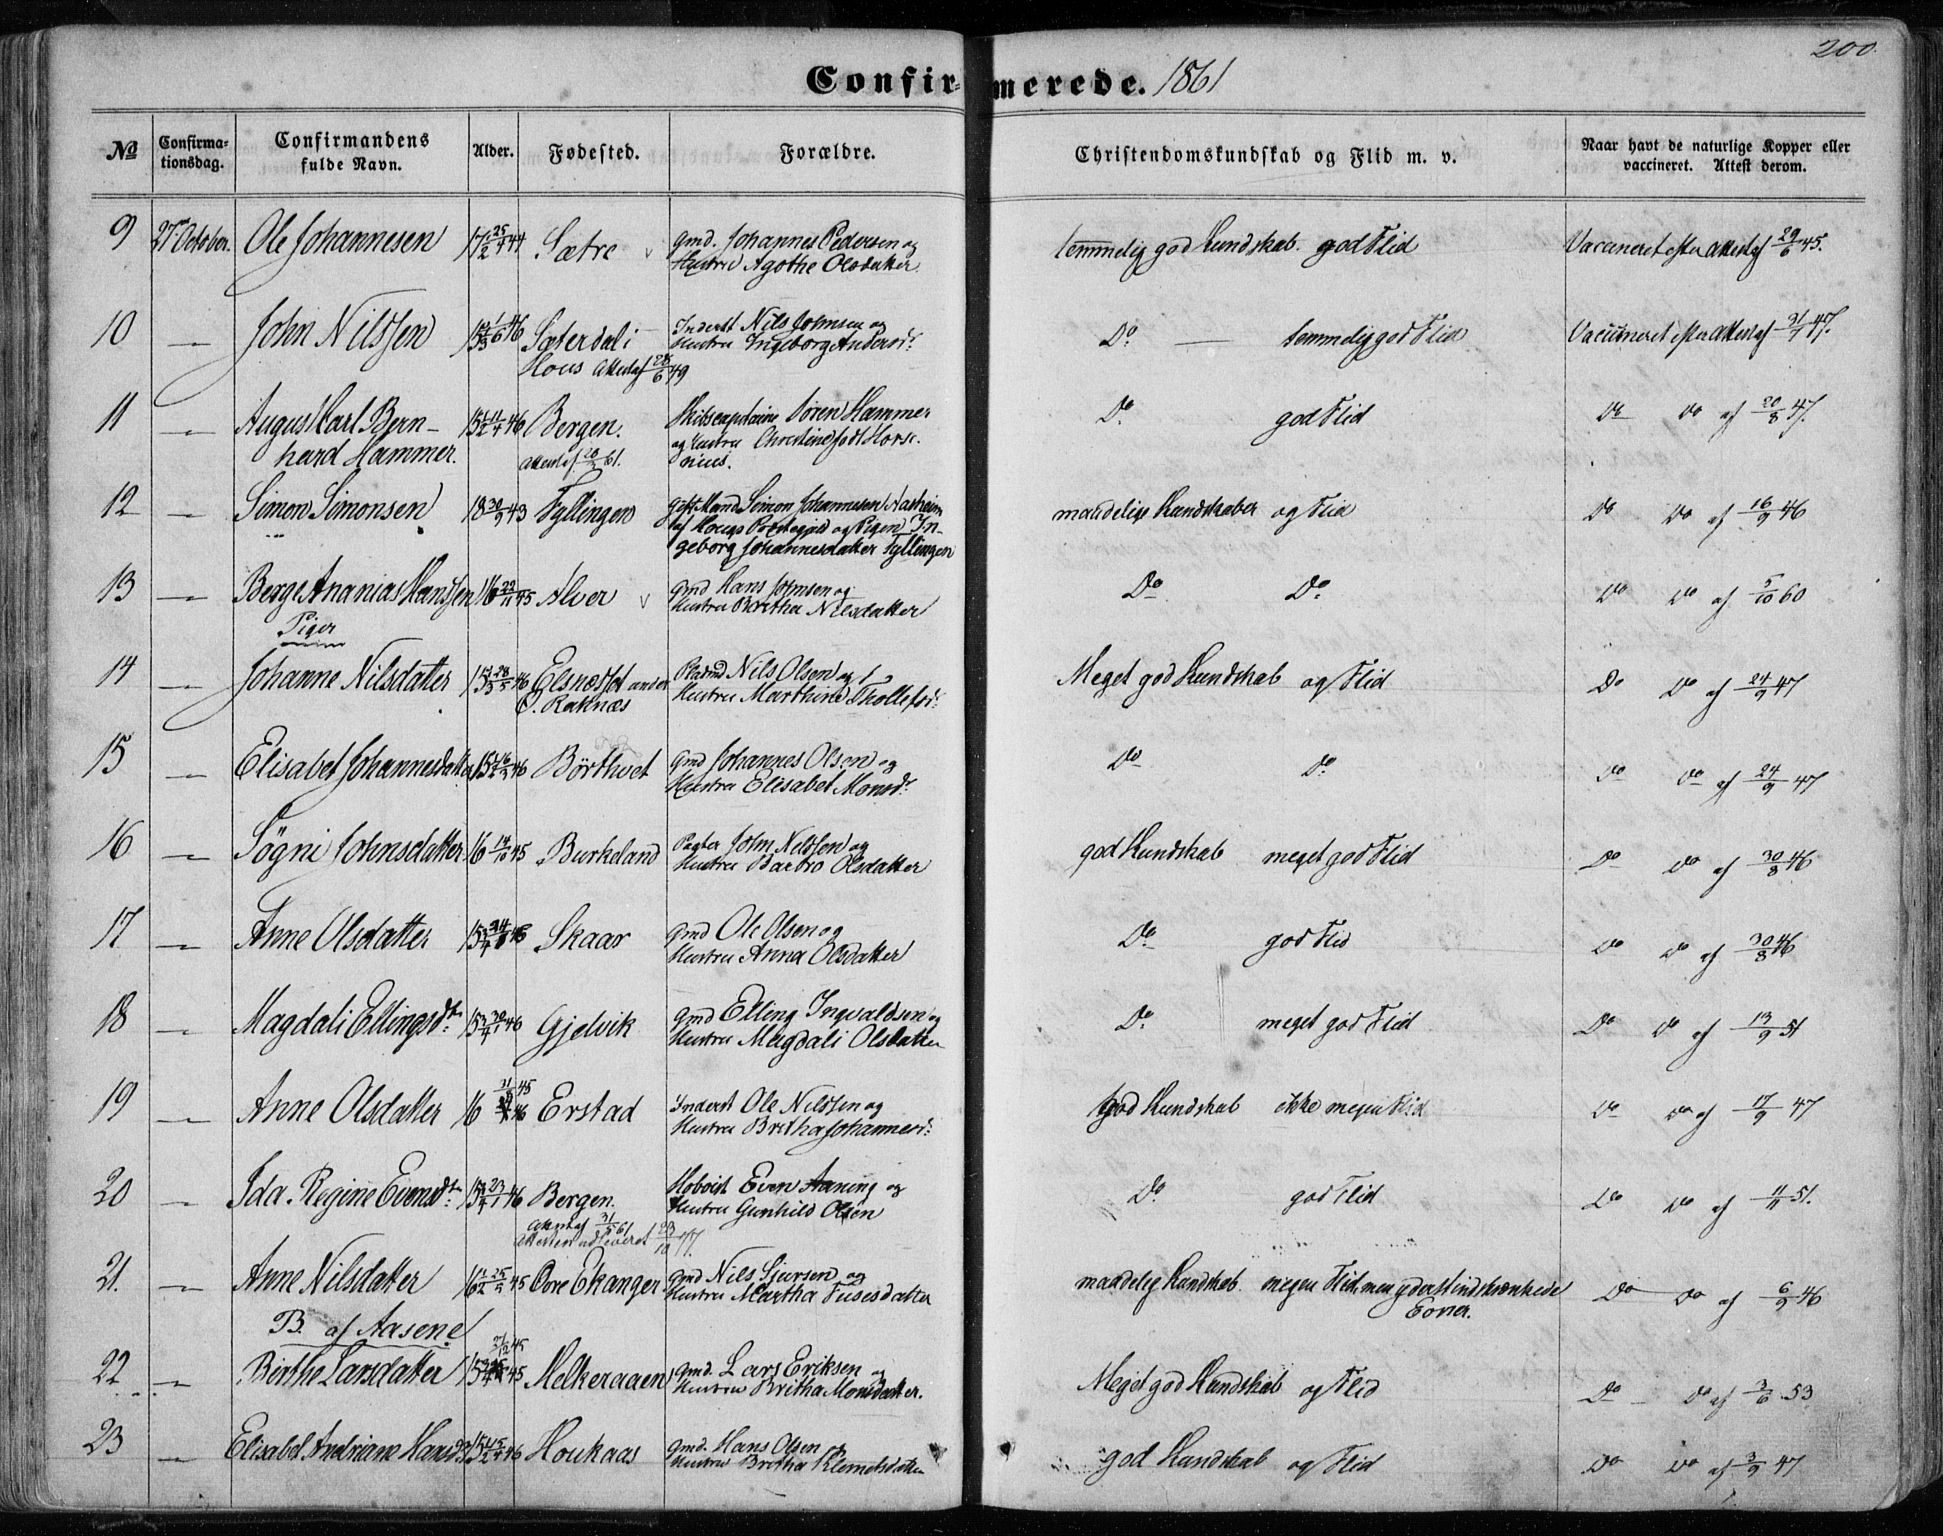 200.
Confirmerede. 1861
№
Confirmationsdag.
Confirmandens fulde Navn.
Alder.
Fødested.
Forældre.
Christendomskundskab og Flid m. v.
Naar havt de naturlige Kopper eller vaccineret. Attest derom.
9 27 October. Ole Johannesen 17 1/2 25/4 44 Sætre Gmd. Johannes Pedersen og temmelig god Kundskab. god Flid Vaccineret efter Attest af 29/6 45.
Hustru Agathe Olsdatter
10 — John Nilssen 15 1/6 46 Sæterdal i Inderst Nils Johnsen og Do — temmelig god Flid Vaccineret efter Attest af 31/7 47.
Hous Attest af 28/6 49 Hustru Ingeborg Andersdr
11 — August Carl Bern- 15 1/2 11/4 46 Bergen. Skibscapitaine Sören Hammer Do god Flid Do Do af 20/8 47.
hard Hammer. Attest af 61. og Hustru Christine født
12 — Simon Simonsen 18 30/9 43 Fyllingen Gift Mand Simon Johannesen maadelige Kundskaber og Flid Do Do af 16/9 46
af Hougs Præstegjeld og Pigen In-
geborg Johannesdatter Fyllingen
13 — Berge Ananias Hanssen 16 22/11 45 Alver Gmd Hans Johnsen og Do Do Do Do af 5/10 60
Hustru Britha Nilsdatter
Piger
14 — Johanne Nilsdatter 15 28/5 46 Elsnæsset under Pladsmd Nils Olsen og Meget god Kundskab og Flid Do Do af 24/9 47
Raknæs Hustru Marthine Thollefsdr
15 — Elisabet Johannesdatter 15 46 Börthvet Gmd Johannes Olsen og Do Do Do Do af 24/9 47
Hustru Elisabet Monsdr
16 — Sögni Johnsdatter 16 14/10 45 Burkeland Pagter John Nilssen og god Kundskab meget god Flid Do Do af 30/8 46
Hustru Barbro Olsdatter
17 — Anne Olsdatter 15 Skaar Gmd Ole Olsen og Do god Flid Do Do af 30/8 46
Hustru Anna Olsdatter
18 — Magdali Ellingsdtr 15 3/4 30/1 46 Gjelvik Gmd Elling Ingvaldsen og Do meget god Flid Do Do af 13/9 51
Hustru Magdali Olsdatter
19 — Anne Olsdatter 16 Erstad Inderst Ole Nilssen og god Kundskab ikke megen Flid Do Do af 17/9 47
Hustru Britha Johannesdr
20 — Ida Regine Evensdtr 15 3/4 23/1 46 Bergen. Hoboist Even Aaning og Do god Flid Do Do af 11/11 51.
Attest af 31/5 61 Hustru Gunhild Olsen
Attesten udleveret 23/10 77.
21. — Anne Nilsdatter 16 1/2 25/5 45 Övre Ekanger Gmd Nils Sjursen og maadelig Kundskab. megen Flid, men yderst indskrænkede Do Do af 6/9 46
Hustru Martha Fusesdatter Evner.
B. af Aasene
22 — Birthe Larsdatter 15 45 Melkeraaen Gmd. Lars Eriksen og Meget god Kundskab og Flid Do Do af 3/6 53
Hustru Britha Monsdatter.
23 — Elisabet Andriane Hansdr 15 1/2 46 Houkaas Gmd. Hans Olsen og god Kundskab og Flid Do Do af 3/9 47
Hustru Britha Klemetsdatter